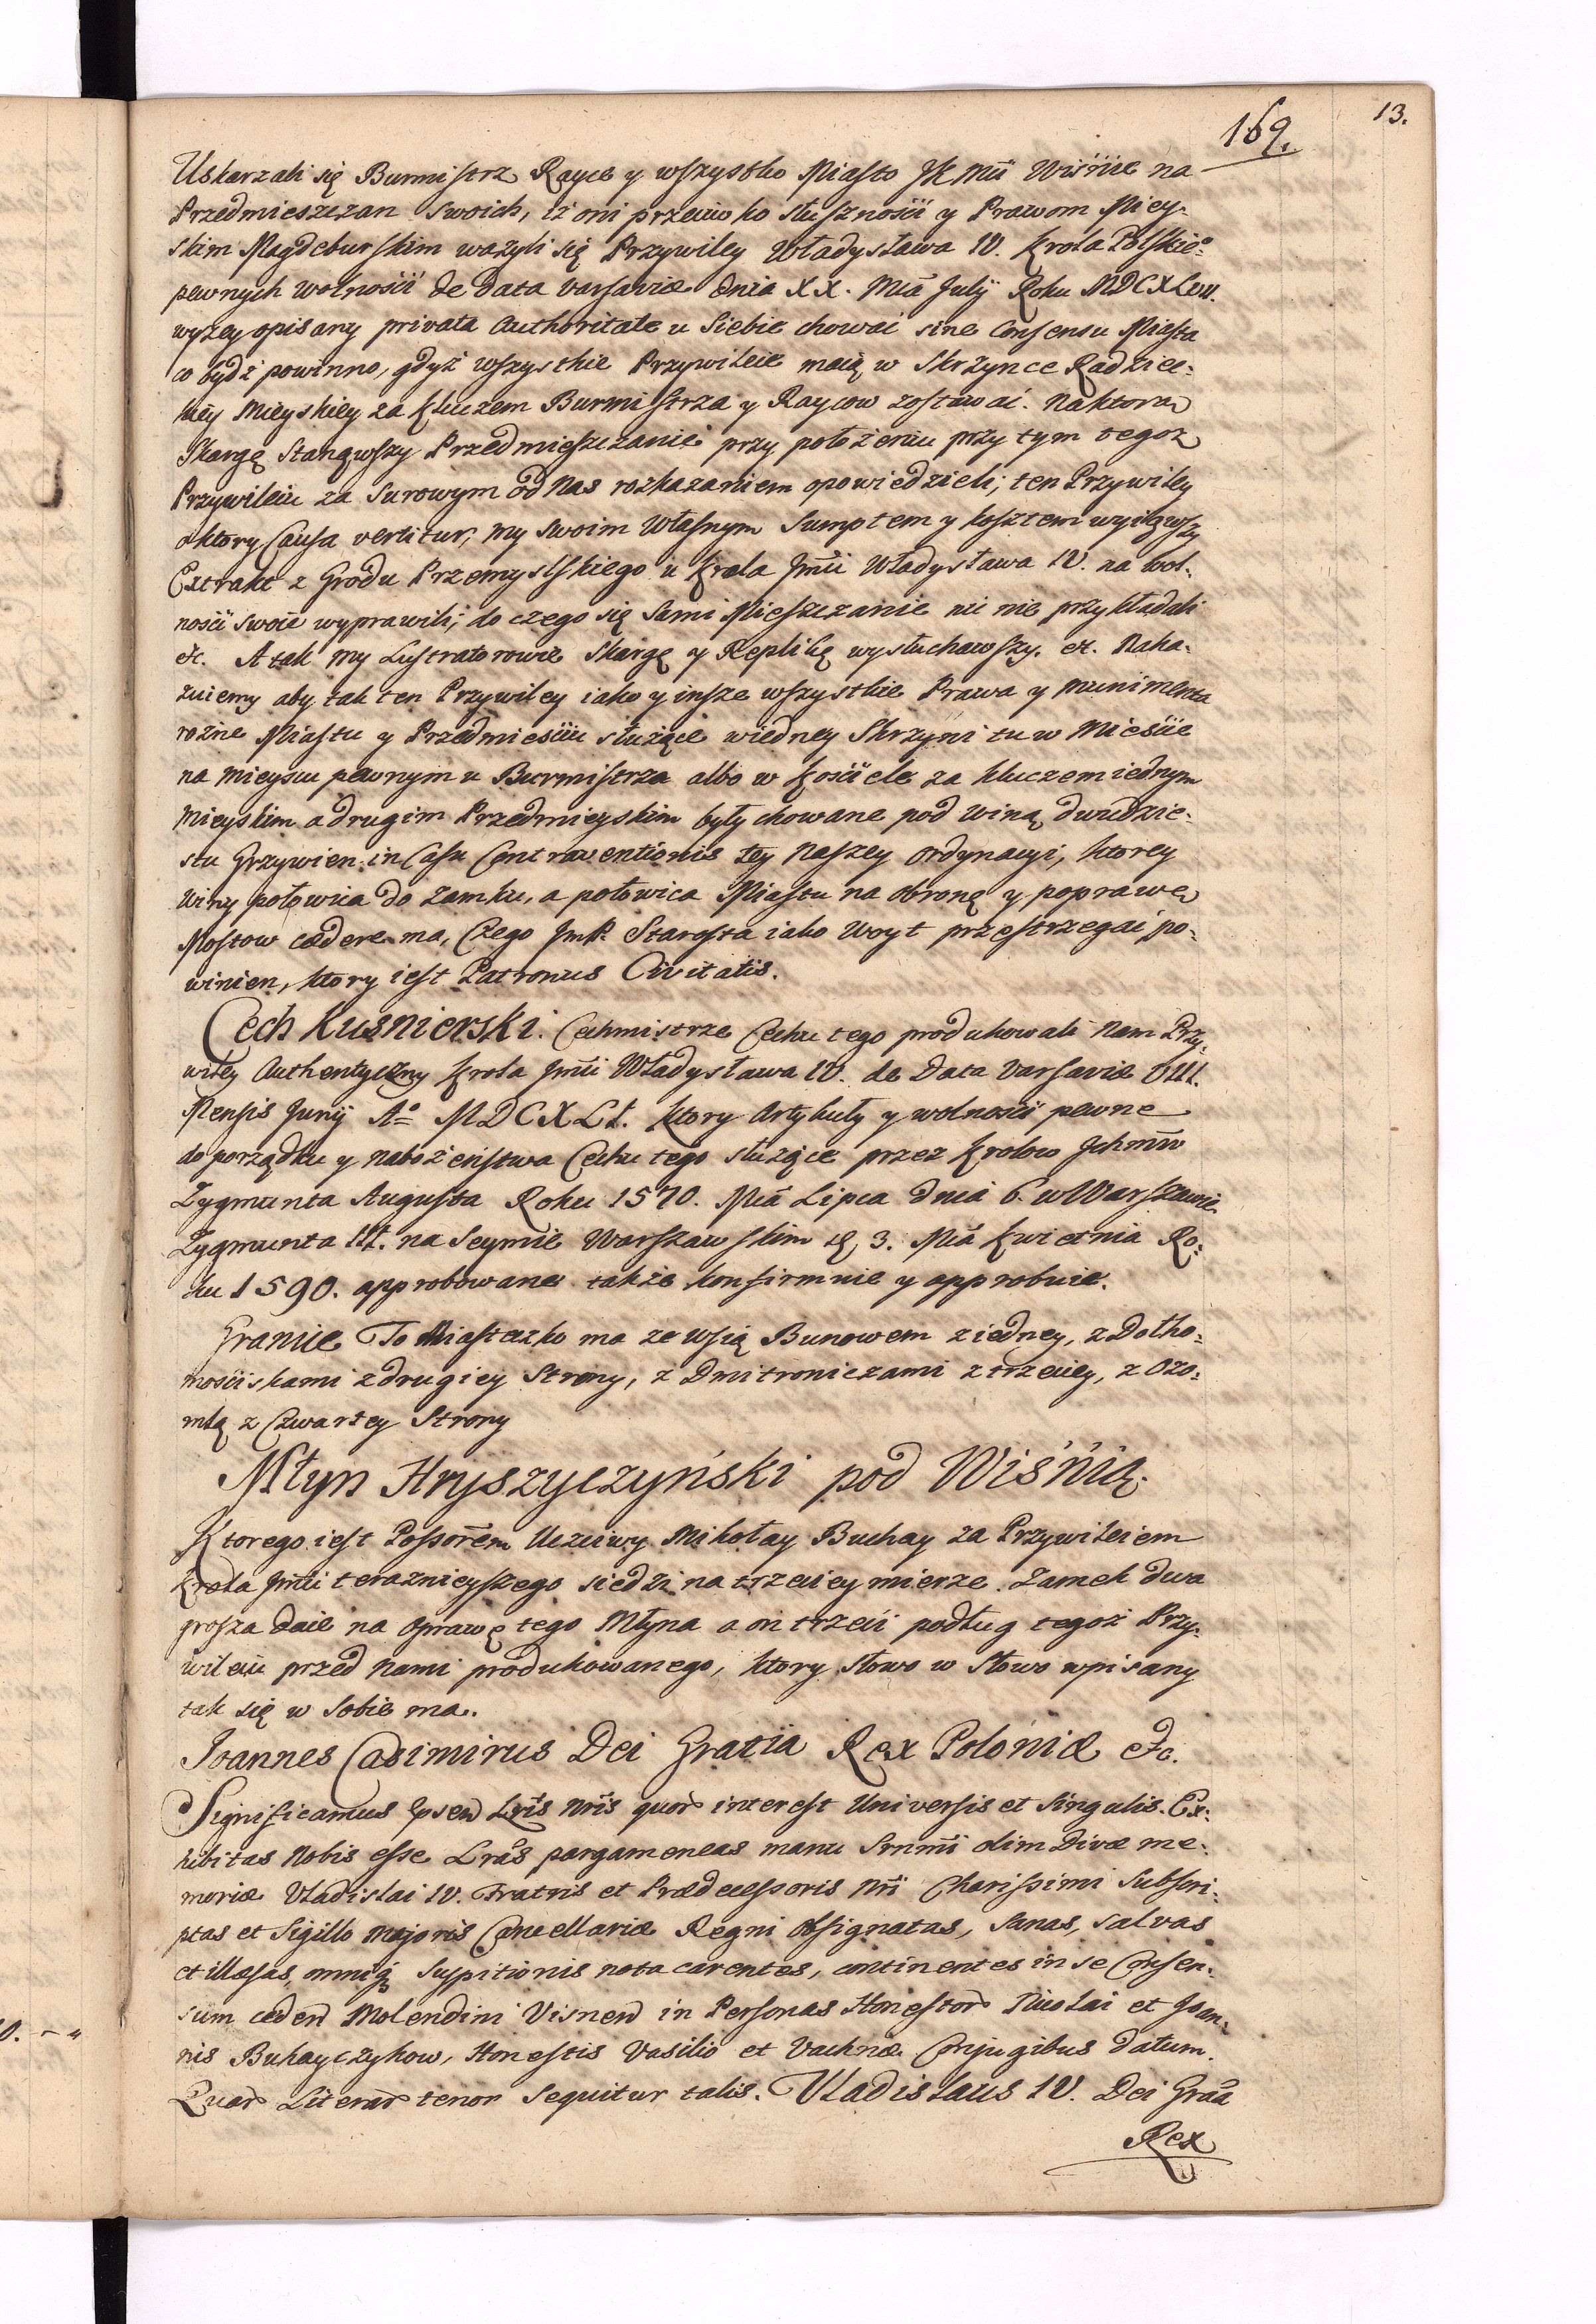 13.
169.
Uskarzali się Burmistrz Rayce y wszystko Miasto JK Mći Wiśnie na
Przedmieszczan swoich, iż oni przeciwko słusznośći y Prawom Miey-
skim Magdeburskim ważyli się Przywiley Władysława IV. Krola Polskieº
pewnych wolnośći de Data Varsaviæ dnia XX. Mcã July Roku MDCXLVII.
wyzey opisany privata Authoritate u Siebie chować sine Consensu Miasta
co bydź powinno, gdyż wszystkie Przywileie maią w Skrzynce Radziec-
kiey Mieyskiey za Kluczem Burmistrza y Raycow zostawać. Na ktorą
Skargę Stanąwszy Przedmieszczanie przy położeniu przy tym tegoz
Przywileiu za Surowym od Nas rozkazaniem opowiedzieli; ten Przywiley
o ktory Causa vertitur, my swoim Własnym Sumptem y kosztem wyiąwszy
Extrakt z Grodu Przemyslskiego u Krola Jmći Władysława IV. na wol-
nośći swoie wyprawili; do czego się Sami Mieszczanie nic nie przykładali
etc. A tak my Lustratorowie Skargę y Replikę wysłuchawszy. etc. Naka-
zuiemy aby tak ten Przywiley iako y insze wszystkie Prawa y munimenta
rożne Miastu y Przedmieśćiu służące w iedney Skrzyni tu w Mieśćie
na mieyscu pewnym u Burmistrza albo w Kośćiele za kluczem iednym
Mieyskim a drugim Przedmieyskim były chowane pod winą dwudzie-
stu Grzywien in Casu Contraventionis tey Naszey Ordynacyi, ktorey
winy połowica do Zamku, a połowica Miastu na obronę y poprawę
Mostow cedere ma, Czego JmP. Starosta iako Woyt przestrzegać po-
winien, ktory iest Patronus Civitatis.
Cech Kuśnierski. Cechmistrze Cechu tego produkowali Nam Przy-
wiley Authentyczny Krola Jmći Władysława IV. de Data Varsaviæ VIII.
Mensis Junij Aº MDCXLI. Ktory Artykuły y wolnośći pewne
do porządku y nabożeństwa Cechu tego służące przez Krolow Ichmćiw
Zygmunta Augusta Roku 1570. Mcã Lipca dnia 6. w Warszawie
Zygmunta III. na Seymie Warszawskim d, 3. Mcã Kwietnia Ro-
ku 1590. approbowane także konfirmuie y approbuie.
Granice To Miasteczko ma ze wsią Bunowem z iedney, z Dołho-
mośćiskami z drugiey Strony, z Dmitrowiczami z trzeciey, z Ożo-
mlą z Czwartey Strony
Młyn Hryszyczyński pod Wiśnią.
Ktorego iest Possorem Uczciwy Mikołay Buchay za Przywileiem
Krola Jmći teraznieyszego siedzi na trzeciey mierze. Zamek dwa
grosza daie na oprawę tego Młyna a on trzeći podług tegoż Przy-
wileiu przed Nami produkowanego, ktory słowo w słowo wpisany
tak się w sobie ma.
Joannes Casimirus Dei Gratia Rex Poloniæ etc.
Significamus Lris Nris quor interest Universis et Singulis. Ex-
hibitas Nobis esse Lras pargameneas manu Srnmi olim Divæ me-
moriæ Vladislai IV. Fratris et Prædecessoris Nri Charissimi Subscri-
ptas et Sigillo Majoris Cancellariæ Regni obsignatas, Sanas, Salvas
et illæsas, omniq3 Suspitionis nota carentes, continentes in se Consen-
sum Molendini Visnen in Personas Honestor Nicolai et Joan-
nis Buhayczykow, Honestis Vasilio et Vachnæ Conjugibus datum.
Quar Literar tenor Sequitur talis. Vladislaus IV. Dei Graã
Rex